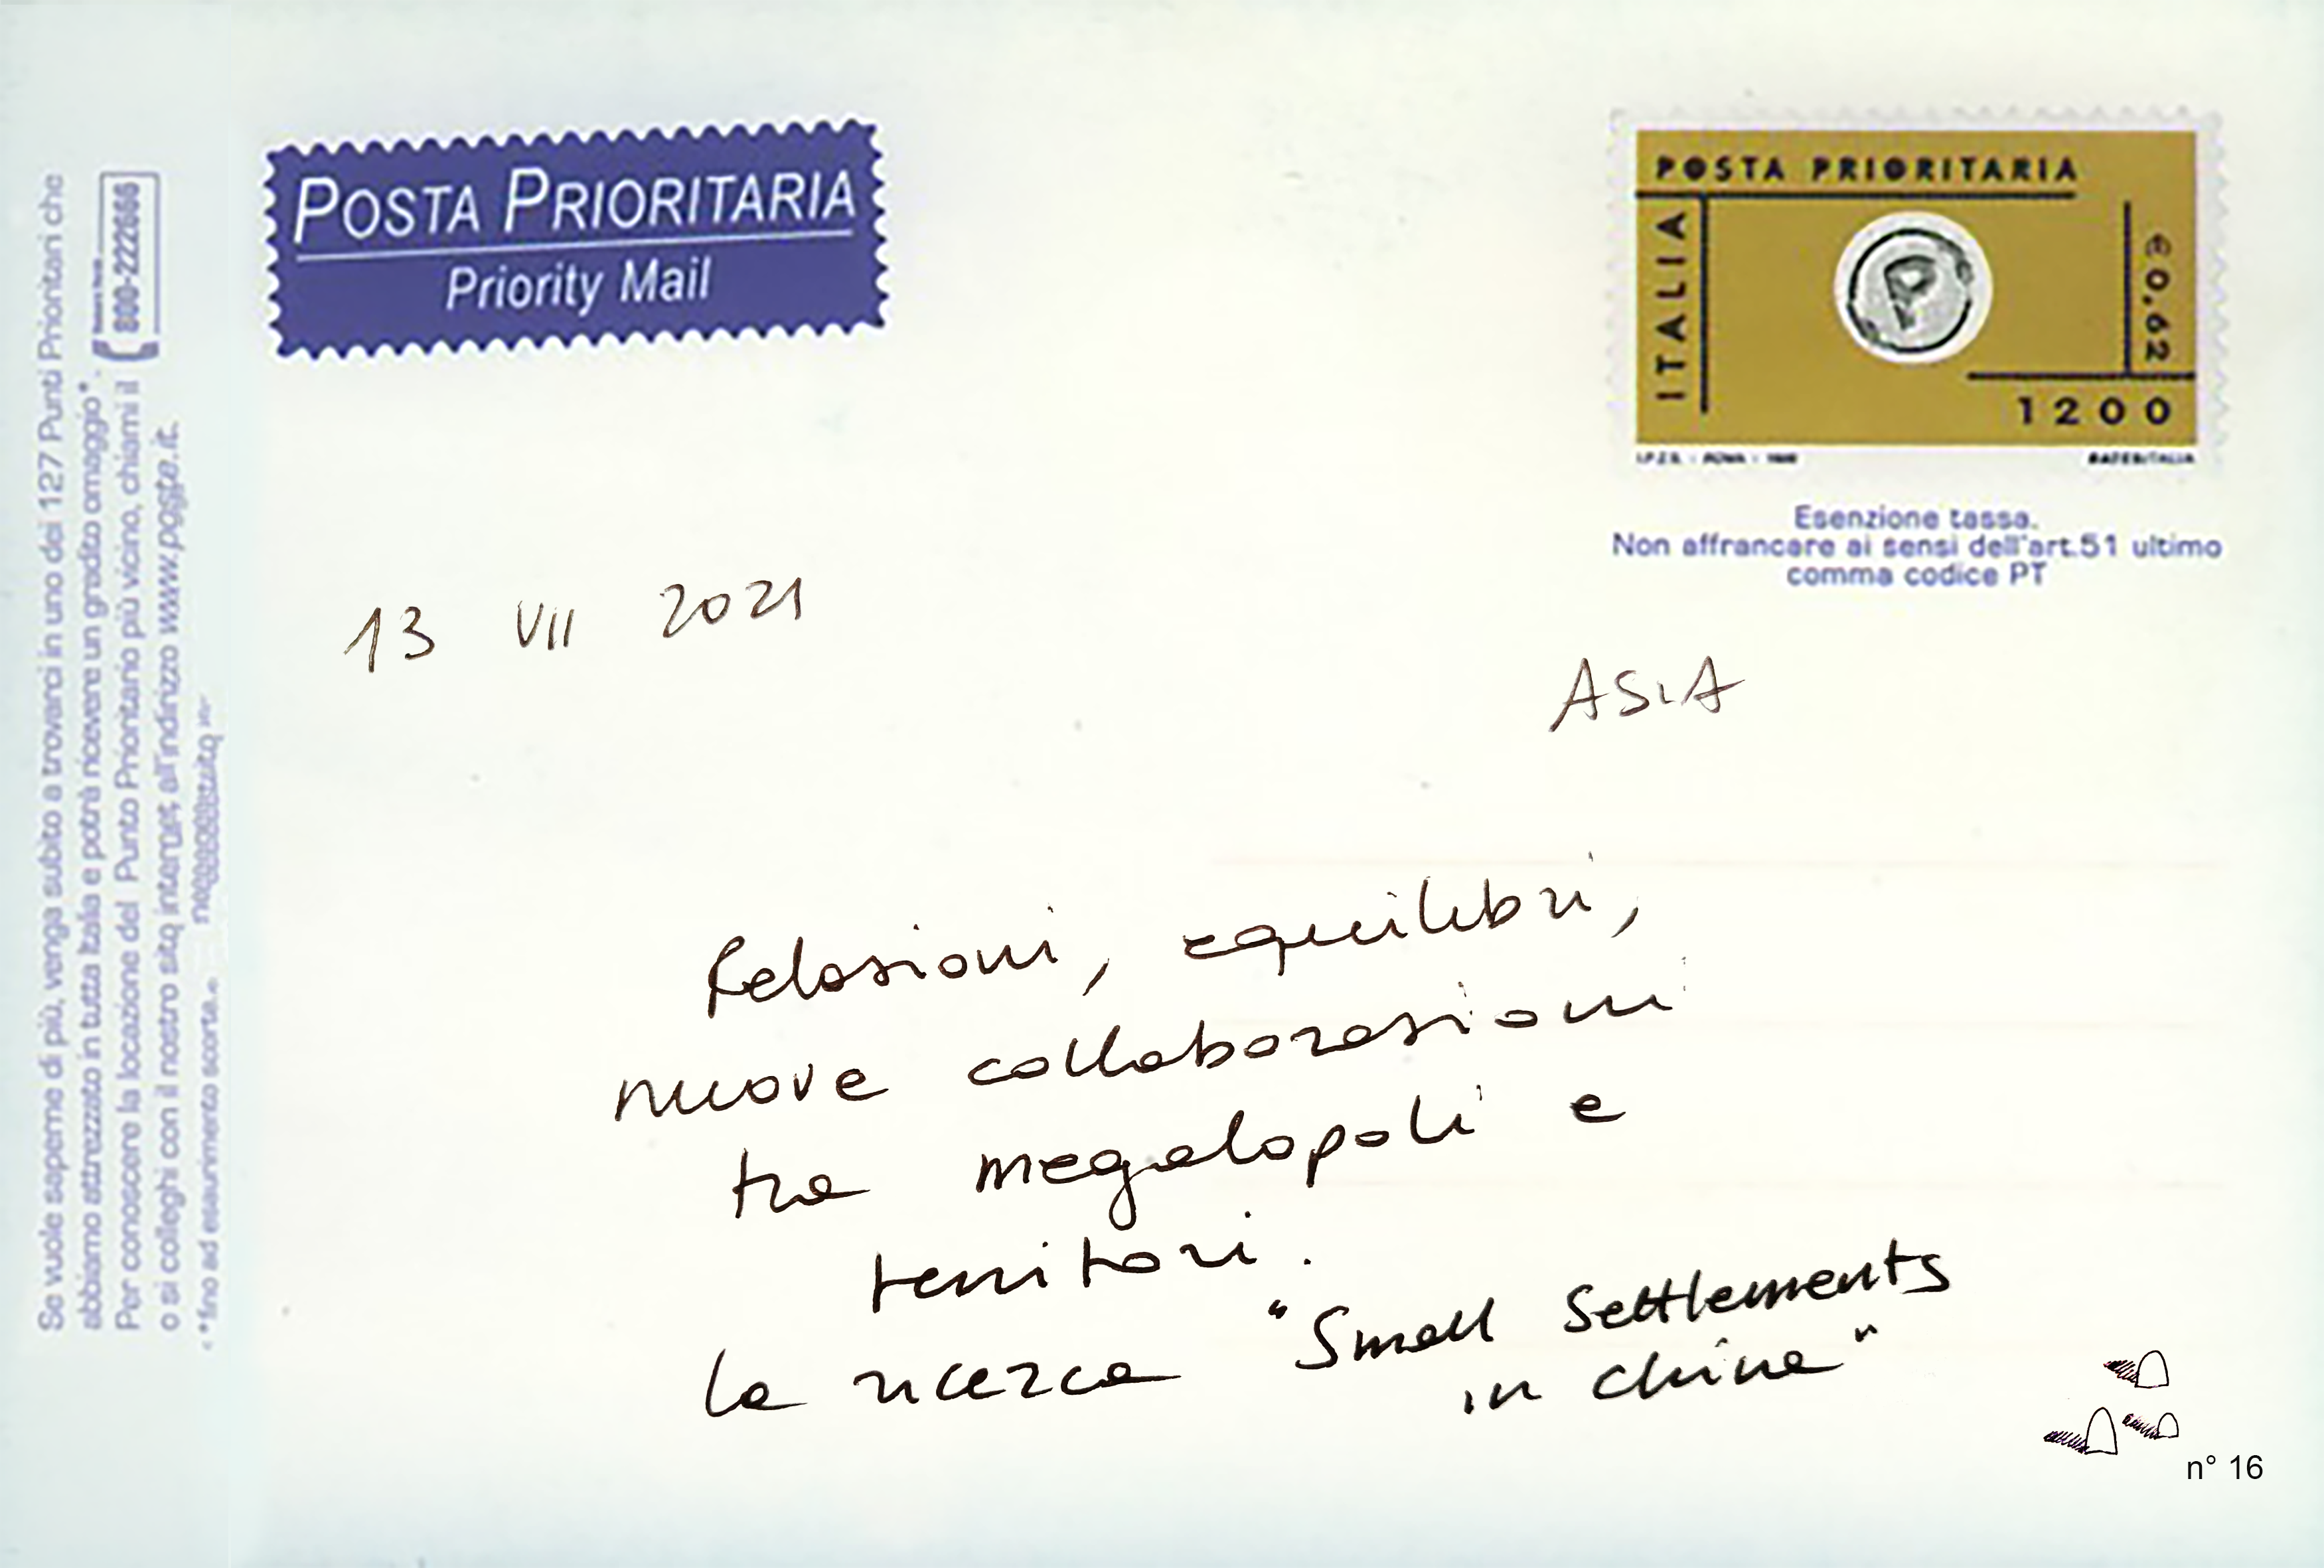 POSTA PRIORITARIA
Priority Mail
POSTA PRIORITARIA
ITALIA
P
€0,62
1200
I.P.Z.S. - ROMA -
Esenzione tassa.
Non affrancare ai sensi dell'art.51 ultimo
comma codice PT
Se vuole saperne di più, venga subito a trovarci in uno dei 127 Punti Prioritari che
abbiamo attrezzato in tutta Italia e potrà ricevere un gradito omaggio*.
Per conoscere la locazione del Punto Prioritario più vicino, chiami il 800-222666
o si colleghi con il nostro sito internet all'indirizzo www.poste.it.
*fino ad esaurimento scorte.
13 VII 2021
ASIA
Relazioni, equilibri,
nuove collaborazioni
tra megalopoli e
territori.
la ricerca "Small Settlements
in China"
n° 16